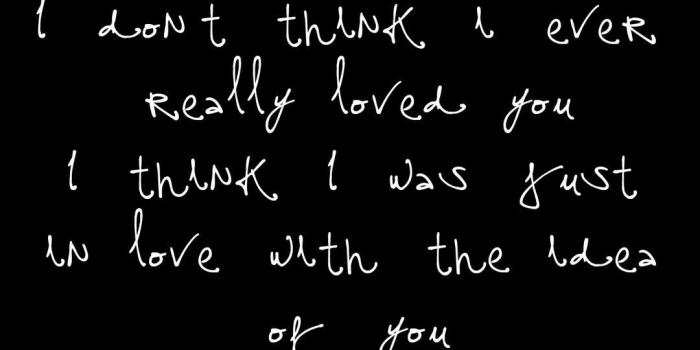 I don t think i ever
really loved you
I think I was just
in love with the idea
of you